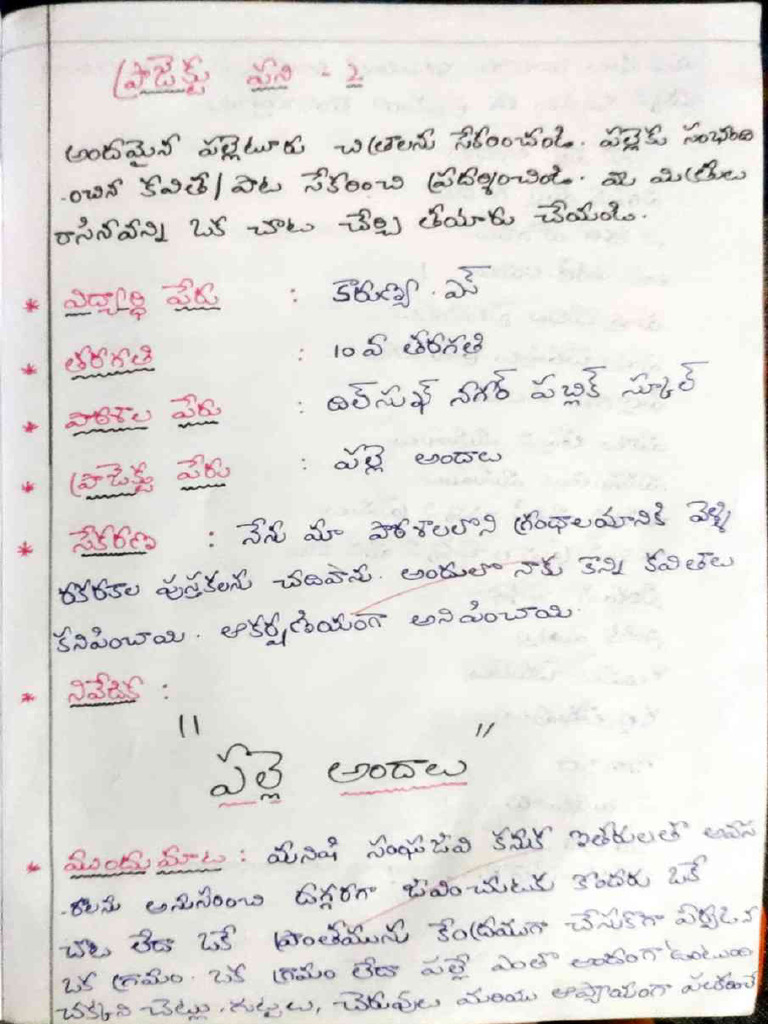 ప్రాజెక్టు పని - 2
అందమైన పల్లెటూరు చిత్రాలను సేకరించండి. పల్లెకు సంభంది
-ంచిన కవిత/పాట సేకరించి ప్రదర్శించండి. మీ మిత్రులు
రాసినవన్ని ఒక చోట చేర్చి తయారు చేయండి.
* విద్యార్థి పేరు : కారుణ్య . ఎస్
* తరగతి : 10 వ తరగతి
* పాఠశాల పేరు : దిల్‌సుఖ్ నగర్ పబ్లిక్ స్కూల్
* ప్రాజెక్టు పేరు : పల్లె అందాలు
* సేకరణ : నేను మా పాఠశాలలోని గ్రంథాలయానికి వెళ్ళి
రకరకాల పుస్తకలను చదివాను. అందులో నాకు కొన్ని కవితలు
కనిపించాయి. ఆకర్షణీయంగా అనిపించాయి.
* నివేదిక :
" పల్లె అందాలు "
* ముందు మాట : మనిషి సంఘజీవి కనుక ఇతరులతో అవస
-రాలను అనుసరించి దగ్గరగా జీవించుటకు కొందరు ఒకే
చోట లేదా ఒకే ప్రాంతమును కేంద్రముగా చేసుకొగా ఏర్పడిన
ఒక గ్రామం. ఒక గ్రామం లేదా పల్లే ఎంతో అందంగా ఉంటుంది
చక్కని చెట్లు, గుట్టలు, చెరువులు మరియు ఆప్యాయంగా